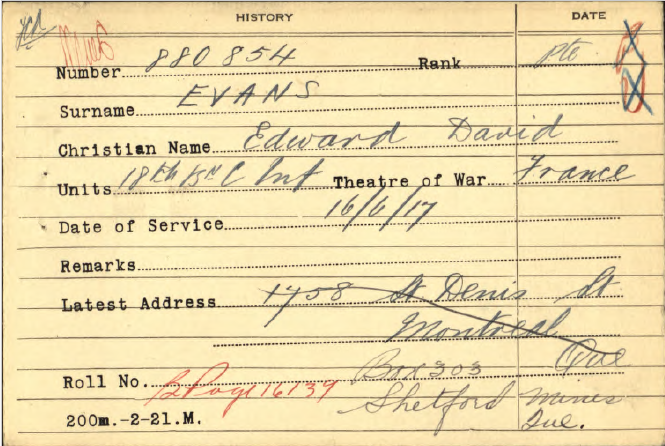 HISTORY DATE
Number 880854 Rank Pte
Surname EVANS
Christian Name Edward David
Units 18th Bn C Inf Theatre of War France
Date of Service 16/6/17
Remarks
Latest Address 1458 St Denis St
Montreal
Que
Roll No. B Page 16139 Box 303
Shetford Mines
200m.-2-21.M. Que.